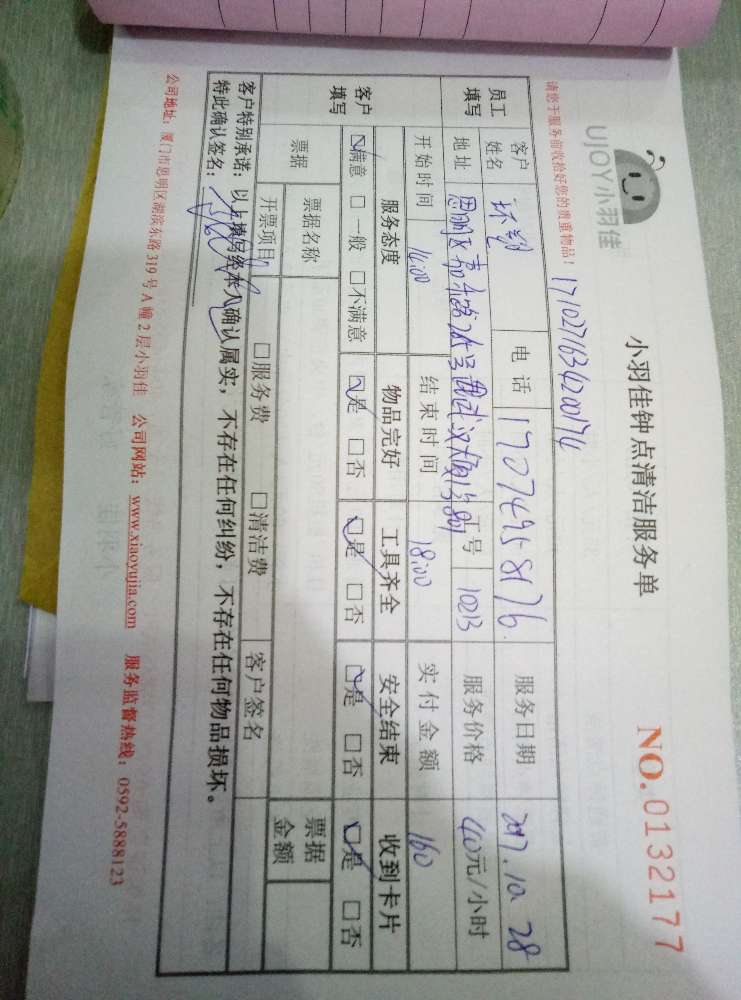 UJOY小羽佳
小羽佳钟点清洁服务单
NO.0132177
请您于服务前收拾好您的贵重物品!
171027163420074
员工填写
客户姓名 电话 17074958176 服务日期 2017.10.28
地址 思明区 工号 1023 服务价格 40元/小时
开始时间 14:00 结束时间 18:00 实付金额 160
客户填写
服务态度 物品完好 工具齐全 安全结束 收到卡片
☑满意 □一般 □不满意 ☑是 □否 ☑是 □否 ☑是 □否 ☑是 □否
票据 票据名称 票据金额
开票项目 □服务费 □清洁费 客户签名
客户特别承诺:以上填写经本人确认属实,不存在任何纠纷,不存在任何物品损坏。
特此确认签名:
公司地址:厦门市思明区湖滨东路319号A幢2层小羽佳 公司网站:www.xiaoyujia.com 服务监督热线:0592-5888123